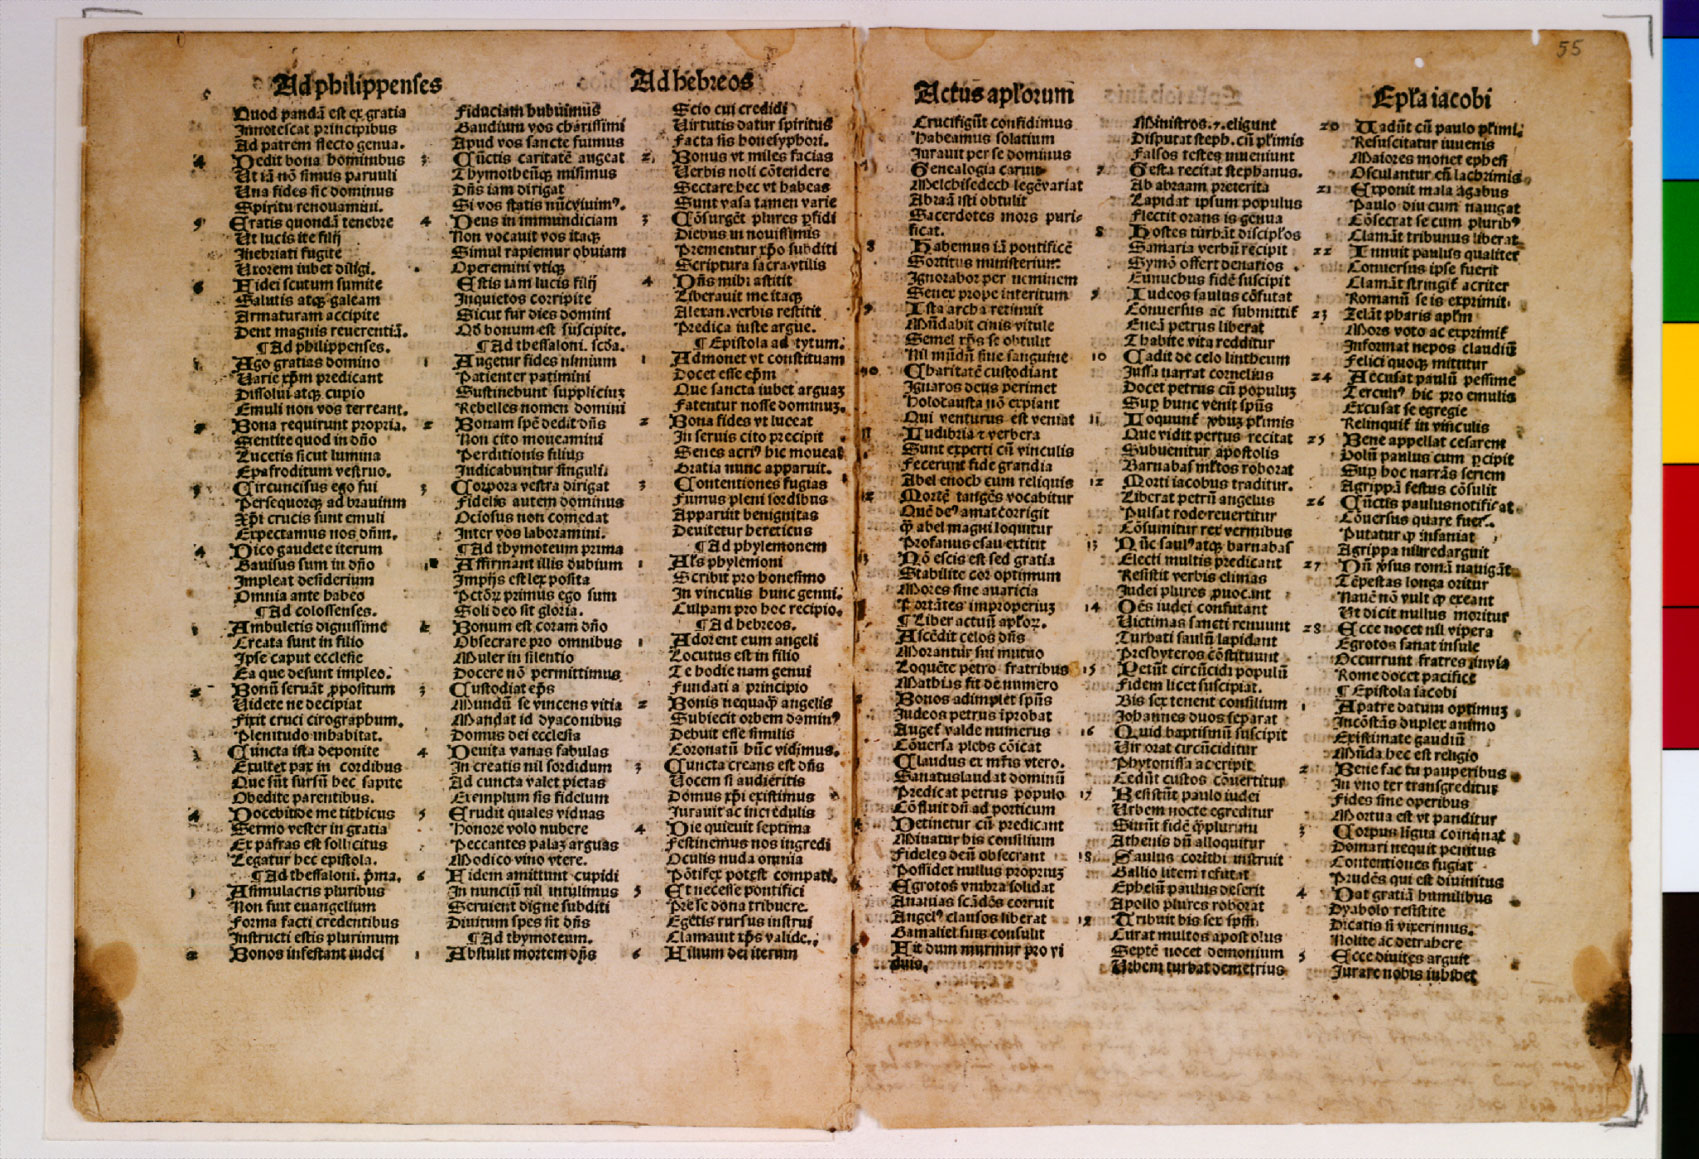 Ad philippenses
Quod pandā est ex gratia
Innotescat principibus
Ad patrem flecto genua.
4 Dedit bona hominibus
Ut iā nō simus paruuli
Una fides sic dominus
Spiritu renouamini.
5 Eratis quondā tenebre
Ut lucis ite filij
Inebriati fugite
Uxorem iubet diligi.
6 Fidei scutum sumite
Salutis atqꝫ galeam
Armaturam accipite
Dent magnis reuerentiā.
¶Ad philippenses.
1 Ago gratias domino
Varie xp̄m predicant
Dissolui atqꝫ cupio
Emuli non vos terreant.
2 Bona requirunt propria.
Sentite quod in dn̄o
Lucetis sicut lumina
Epafroditum vestruo.
3 Circuncisus ego fui
Persequorqꝫ ad brauium
Xp̄i crucis sunt emuli
Expectamus nos dn̄m.
4 Dico gaudete iterum
Gauisus sum in dn̄o
Impleat desiderium
Omnia ante habeo
¶Ad colossenses.
1 Ambuletis dignissime
Creata sunt in filio
Ipse caput ecclesie
Ea que desunt impleo.
2 Bonū seruāt ꝓpositum
Videte ne decipiat
Fixit cruci cirographum.
Plenitudo inhabitat.
3 Cuncta ista deponite
Exultet pax in cordibus
Que sūt sursū hec sapite
Obedite parentibus.
4 Docebit de me tithicus
Sermo vester in gratia
Epafras est sollicitus
Legatur hec epistola.
¶Ad thessaloni. p̄ma.
1 A simulacris pluribus
Non fuit euangelium
Forma facti credentibus
Instructi estis plurimum
2 Bonos infestant iudei
Fiduciam habuimus
Gaudium vos charissimi
Apud vos sancte fuimus
3 Cūctis caritatē augeat
Thymotheūqꝫ misimus
Dn̄s iam dirigat
Si vos statis nūc viuimꝰ.
4 Deus in immundiciam
Non vocauit vos itaqꝫ
Simul rapiemur obuiam
Operemini vtiqꝫ
Estis iam lucis filij
Inquietos corripite
Sicut fur dies domini
Qd̄ bonum est suscipite.
¶Ad thessaloni. scd̄a.
1 Augetur fides nimium
Patienter patimini
Sustinebunt suppliciuꝫ
Rebelles nomen domini
2 Bonam spē dedit dn̄s
Non cito moueamini
Perditionis filius
Iudicabuntur singuli.
3 Corpora vestra dirigat
Fidelis autem dominus
Ociosus non comedat
Inter vos laboramini.
¶Ad thymoteum prima
1 Affirmant illis dubium
Impijs est lex posita
Pctōꝝ primus ego sum
Soli deo sit gloria.
2 Bonum est coram dn̄o
Obsecrare pro omnibus
Mulier in silentio
Docere nō permittimus
3 Custodiat ep̄s
Mundū se vincens vitia
Mandat id dyaconibus
Domus dei ecclesia
4 Deuita vanas fabulas
In creatis nil sordidum
Ad cuncta valet pietas
Exemplum sis fidelum
5 Erudit quales viduas
Honore volo nubere
Peccantes palaꝫ arguas
Modico vino vtere.
6 Fidem amittunt cupidi
In nunciū nil intulimus
Seruient digne subditi
Diuitum spes sit dn̄s
¶Ad thymoteum.
1 Abstulit mortem dn̄s
Ad hebreos
Scio cui credidi
Virtutis datur spiritus
Facta sis honesyphori.
2 Bonus vt miles facias
Verbis noli cōtendere
Sectare hec vt habeas
Sunt vasa tamen varie
3 Cōsurgēt plures ꝑfidi
Diebus in nouissimis
Prementur xp̄o subditi
Scriptura sacra vtilis
4 Dn̄s mihi astitit
Liberauit me itaqꝫ
Alexan. verbis restitit
Predica iuste argue.
¶Epistola ad tytum.
1 Admonet vt constituam
Docet esse ep̄m
Que sancta iubet arguaꝫ
Fatentur nosse dominuꝫ.
2 Bona fides vt luceat
In seruis cito precipit
Senes acriꝰ hic moueat
Gratia nunc apparuit.
3 Contentiones fugias
Fumus pleni sordibus
Apparuit benignitas
Deuitetur hereticus
¶Ad phylemonem
1 Als phylemoni
Scribit pro honesimo
In vinculis hunc genui.
Culpam pro hec recipio.
¶Ad hebreos.
1 Adorent eum angeli
Locutus est in filio
Te hodie nam genui
Fundati a principio
2 Bonis nequaqꝫ angelis
Subiecit orbem dominꝰ
Debuit esse similis
Coronatū hūc vidimus.
3 Cuncta creans est dn̄s
Vocem si audieritis
Domus xp̄i existimus
Iurauit ac incredulis
4 Die quieuit septima
Festinemus nos ingredi
Oculis nuda omnia
Pōtifex potest compati.
5 Et necesse pontifici
Pre se dona tribuere.
Egetis rursus instrui
Clamauit xp̄s valide.
6 Filium dei iterum
55
Actus apl'orum
Crucifigūt confidimus
Habeamus solatium
Iurauit per se dominus
7 Genealogia caruit
Melchisedech legē variat
Abraā isti obtulit
Sacerdotes mors puri-
ficat.
8 Habemus iā pontificē
Sortitus ministerium
Ignorabor per neminem
Senex prope interitum
9 Ista archa retinuit
Mūdabit cinis vitule
Semel xp̄s se obtulit
Nil mūdū sine sanguine
10 Charitatē custodiant
Ignaros deus perimet
Holocausta nō expiant
Qui venturus est veniat
11 Ludibria ⁊ verbera
Sunt experti cū vinculis
Fecerunt fide grandia
Abel enoch cum reliquis
12 Mortē tangēs vocabitur
Quē deꝰ amat corrigit
Qꝫ abel magni loquitur
Profanus esau extitit
13 Nō escis est sed gratia
Stabilite cor optimum
Mores sine auaricia
Portātes improperiuꝫ
¶Liber actuū apl'oꝝ.
Ascēdit celos dn̄s
Morantur sui mutuo
Loquēte petro fratribus
Mathias fit de numero
Bonos adimplet sp̄ns
Iudeos petrus īprobat
Auget valde numerus
Cōuersa plebs cōicat
Claudus ex mr̄is vtero.
Sanatus laudat dominū
Predicat petrus populo
Cōfluit dn̄ ad porticum
Detinetur cū predicant
Minatur his consilium
Fideles deū obsecrant
Possidet nullus propriuꝫ
Egrotos vmbra solidat
Ananias scādēs corruit
Angelꝰ clausos liberat
Gamaliel suis consulit
6 Fit dum murmur pro vi
duis.
Ministros .7. eligunt
Disputat steph. cū plimis
Falsos testes inueniunt
7 Gesta recitat stephanus.
Ab abraam preterita
Lapidat ipsum populus
Flectit orans is genua
8 Hostes turbāt discipl'os
Samaria verbū recipit
Symō offert denarios
Eunuchus fidē suscipit
9 Iudeos saulus cōfutat
Conuersus ac submittit̄
Eneā petrus liberat
Thabite vita redditur
10 Cadit de celo lintheum
Iussa narrat cornelius
Docet petrus cū populuꝫ
Suꝑ hunc venit sp̄us
11 Loquunt̄ ꝟbuꝫ plimis
Que vidit pertus recitat
Subuenitur apostolis
Barnabas ml'tos roborat
12 Morti iacobus traditur.
Liberat petrū angelus
Pulsat rode reuertitur
Cōsumitur rex vermibus
13 Nūc saulꝰ atqꝫ barnabas
Electi multis predicant
Resistit verbis elimas
Iudei plures ꝓuocant
14 Oēs iudei confutant
Victimas sancti renuunt
Turbati saulū lapidant
Presbyteros cōstituunt
15 Petūt circūcidi populū
Fidem licet suscipiat.
Bis sex tenent consilium
Iohannes duos separat
16 Quid baptismū suscipit
Vir orat circūciditur
Phytonissa accipit
Cedūt custos cōuertitur
17 Resistūt paulo iudei
Urbem nocte egreditur
Sumūt fidē qꝫplurimi
Athenis dū alloquitur
18 Saulus corithi instruit
Gallio litem refutat
Ephesū paulus deserit
Apollo plures roborat
19 Tribuit bis sex sp̄m
Curat multos apostolus
Septē nocet demonium
Urbem turbat demetrius
Epl'a iacobi
20 Vadūt cū paulo plimi.
Resuscitatur iuuenis
Maiores monet ephesi
Osculantur cū lachrimis
21 Exponit mala agabus
Paulo diu cum nauigat
Cōsecrat se cum pluribꝰ
Clamāt tribunus liberat.
22 Innuit paulus qualiter
Conuersus ipse fuerit
Clamāt stringit̄ acriter
Romanū se is exprimit.
23 Zelāt pharis apl'm
Mors voto ac exprimit̄
Informat nepos claudiū
Felici quoqꝫ mittitur
24 Accusat paulū pessime
Terculꝰ hic pro emulis
Excusat se egregie
Relinquit̄ in vinculis
25 Bene appellat cesarem
Volū paulus cum ꝑcipit
Suꝑ hoc narrās seriem
Agrippā festus cōsulit
26 Cūctis paulus notificat
Cōuersus quare fuer̄.
Putatur qꝫ insaniat
Agrippa nil redarguit
27 Dū ꝟsus romā nauigāt
Tēpestas longa oritur
Nauē nō vult qꝫ exeant
Ut dicit nullus moritur
28 Ecce nocet nil vipera
Egrotos sanat insule
Occurrunt fratres inuia
Rome docet pacifice
¶Epistola iacobi
1 A patre datum optimuꝫ
Incōstās duplex animo
Existimate gaudiū
Mūda hec est religio
2 Bene fac tu pauperibus
In vno ter transgreditur
Fides sine operibus
Mortua est vt panditur
3 Corpus ligua coinquat
Domari nequit penitus
Contentiones fugiat
Prudēs qui est diuinitus
4 Dat gratiā humilibus
Dyabolo resistite
Dicatis si vixerimus.
Nolite ac detrahere
5 Ecce diuites arguit
Iurare nobis iubdet